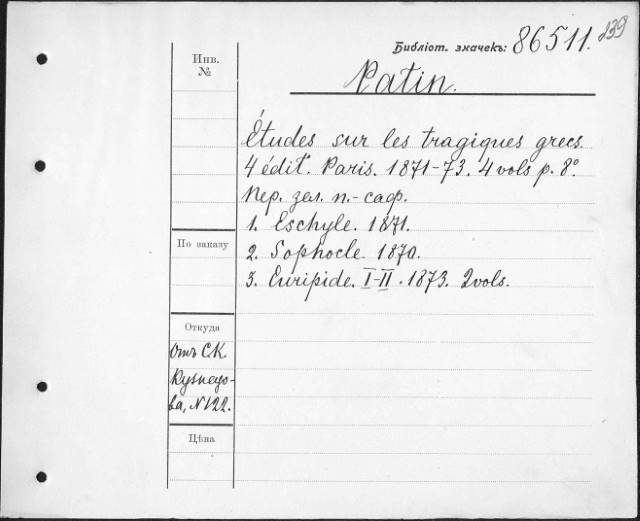 239
Библіот. значекъ: 86511.
Инв.
№
Patin.
Études sur les tragiques grecs.
4 édit. Paris. 1871-73. 4 vols p. 8º
Пер. зел. п.-саф.
1. Eschyle. 1871.
По заказу
2. Sophocle. 1870.
3. Euripide. I-II. 1873. 2 vols.
Откуда
Отъ С.К.
Кузнецо-
ва, № 122.
Цѣна